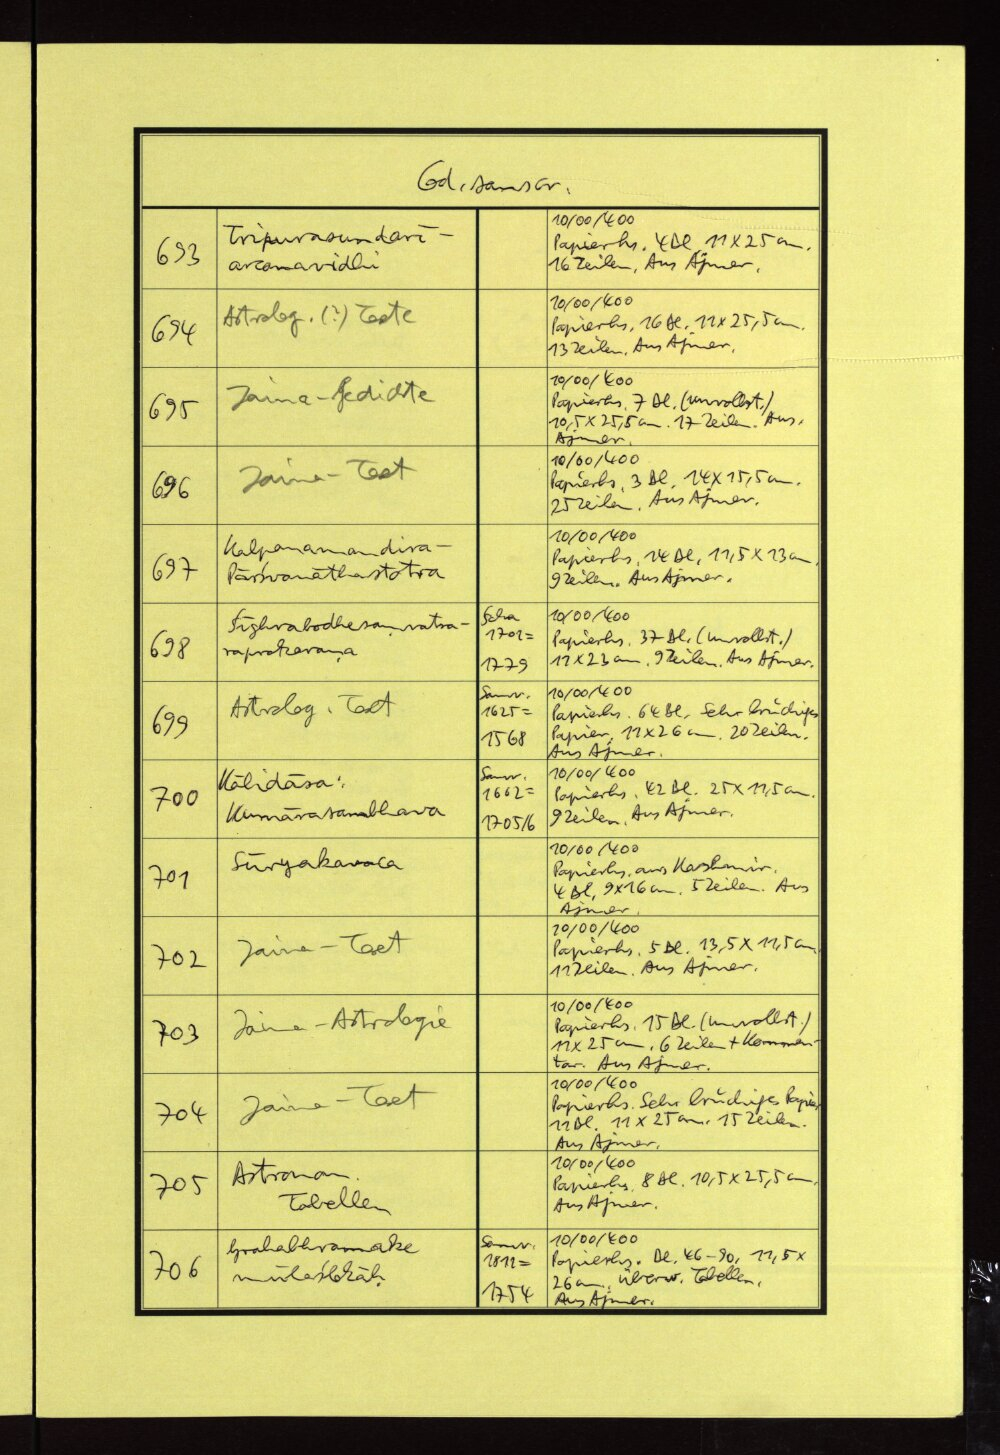 Cod. sanscr.
693
Tripurasundarī-
arcanavidhi
10/00/400
Papierhs. 4 Bl. 11 x 25 cm.
16 Zeilen. Aus Ajmer.
694
Astrolog. (?) Texte
10/00/400
Papierhs. 16 Bl. 11 x 25,5 cm.
13 Zeilen. Aus Ajmer.
695
Jaina-Gedichte
10/00/400
Papierhs. 7 Bl. (unvollst.)
10,5 x 25,5 cm. 17 Zeilen. Aus
Ajmer.
696
Jaina-Text
10/00/400
Papierhs. 3 Bl. 14 x 15,5 cm.
25 Zeilen. Aus Ajmer.
697
Kalyanamandira-
Pārśvanāthastotra
10/00/400
Papierhs. 14 Bl. 11,5 x 13 cm.
9 Zeilen. Aus Ajmer.
698
Śīghrabodhe saṃvatsa-
raprakaraṇa
1701=
1779
10/00/400
Papierhs. 37 Bl. (unvollst.)
11 x 23 cm. 9 Zeilen. Aus Ajmer.
699
Astrolog. Text
Samv.
1625=
1568
10/00/400
Papierhs. 64 Bl. Sehr brüchiges
Papier. 11 x 26 cm. 20 Zeilen.
Aus Ajmer.
700
Kālidāsa:
Kumārasambhava
Samv.
1662=
1705/6
10/00/400
Papierhs. 42 Bl. 25 x 11,5 cm.
9 Zeilen. Aus Ajmer.
701
Sūryakavaca
10/00/400
Papierhs. aus Kashmir.
4 Bl. 9x16 cm. 5 Zeilen. Aus
Ajmer.
702
Jaina-Text
10/00/400
Papierhs. 5 Bl. 13,5 x 11,5 cm.
11 Zeilen. Aus Ajmer.
703
Jaina-Astrologie
10/00/400
Papierhs. 15 Bl. (unvollst.)
11 x 25 cm. 6 Zeilen + Kommen-
tar. Aus Ajmer.
704
Jaina-Text
10/00/400
Papierhs. Sehr brüchiges Papier
11 Bl. 11 x 25 cm. 15 Zeilen.
Aus Ajmer.
705
Astronom.
Tabellen
10/00/400
Papierhs. 8 Bl. 10,5 x 25,5 cm.
Aus Ajmer.
706
Grahabhramake
mūlaślokāḥ
Samv.
1811=
1754
10/00/400
Papierhs. Bl. 46-90, 11,5 x
26 cm. überw. Tabellen.
Aus Ajmer.